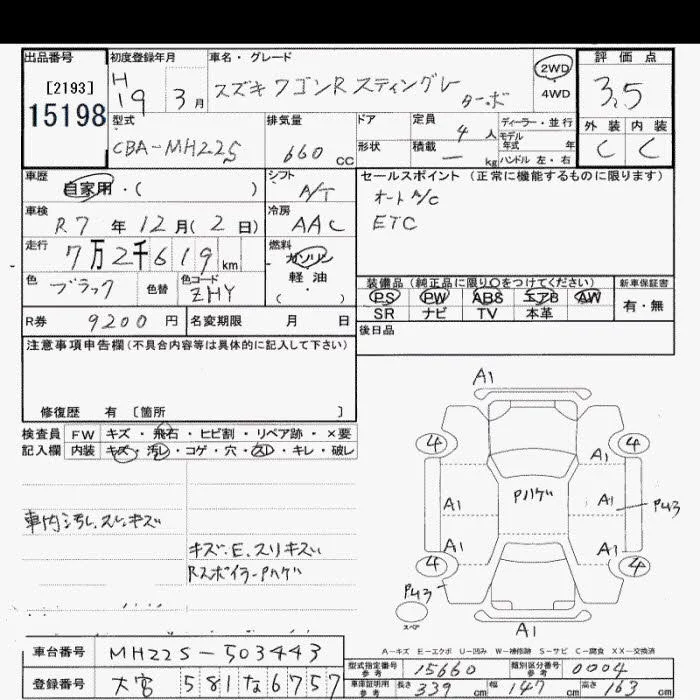 出品番号
[2193]
15198
初度登録年月
H19 3月
車名・グレード
スズキ ワゴンR スティングレー
ターボ
2WD
4WD
評価点
3.5
外装 内装
C C
型式
CBA-MH22S
排気量
660 CC
ドア
形状
定員 4 人
積載 — kg
ディーラー・並行
モデル年式 年
ハンドル 左・右
車歴
自家用・( )
シフト
A/T
セールスポイント(正常に機能するものに限ります)
オートA/C
ETC
車検
R7年12月(2日)
冷房
AAC
走行
7万2千619km
燃料
ガソリン
軽・油
( )
色
ブラック
色替
色コード
ZHY
装備品(純正品に限り○をつけてください)
PS PW ABS エアB AW
SR ナビ TV 本革
新車保証書
有・無
R券 9200円
名変期限 月 日
後日品
注意事項申告欄(不具合内容等は具体的に記入して下さい)
修復歴 有〔箇所 〕
検査員 FW キズ・飛石・ヒビ割・リペア跡・×要
記入欄 内装 キズ・汚レ・コゲ・穴・スレ・キレ・破レ
車内汚レ.スレ.キズ
キズ.E.スリキズ
RスポイラーPハゲ
A1
4 4
A1
Pハゲ
A1 A1 Pサ3
A1 A1
4 4
Pサ3
スペア
A1
A-キズ E-エクボ U-凹み W-補修跡 S-サビ C-腐食 XX-交換済
車台番号 MH22S-503443
登録番号 大宮 581 な 6757
型式指定番号 参考 15660
類別区分番号 参考 0004
車庫証明用 参考 長さ 339 cm 幅 147 cm 高さ 163 cm